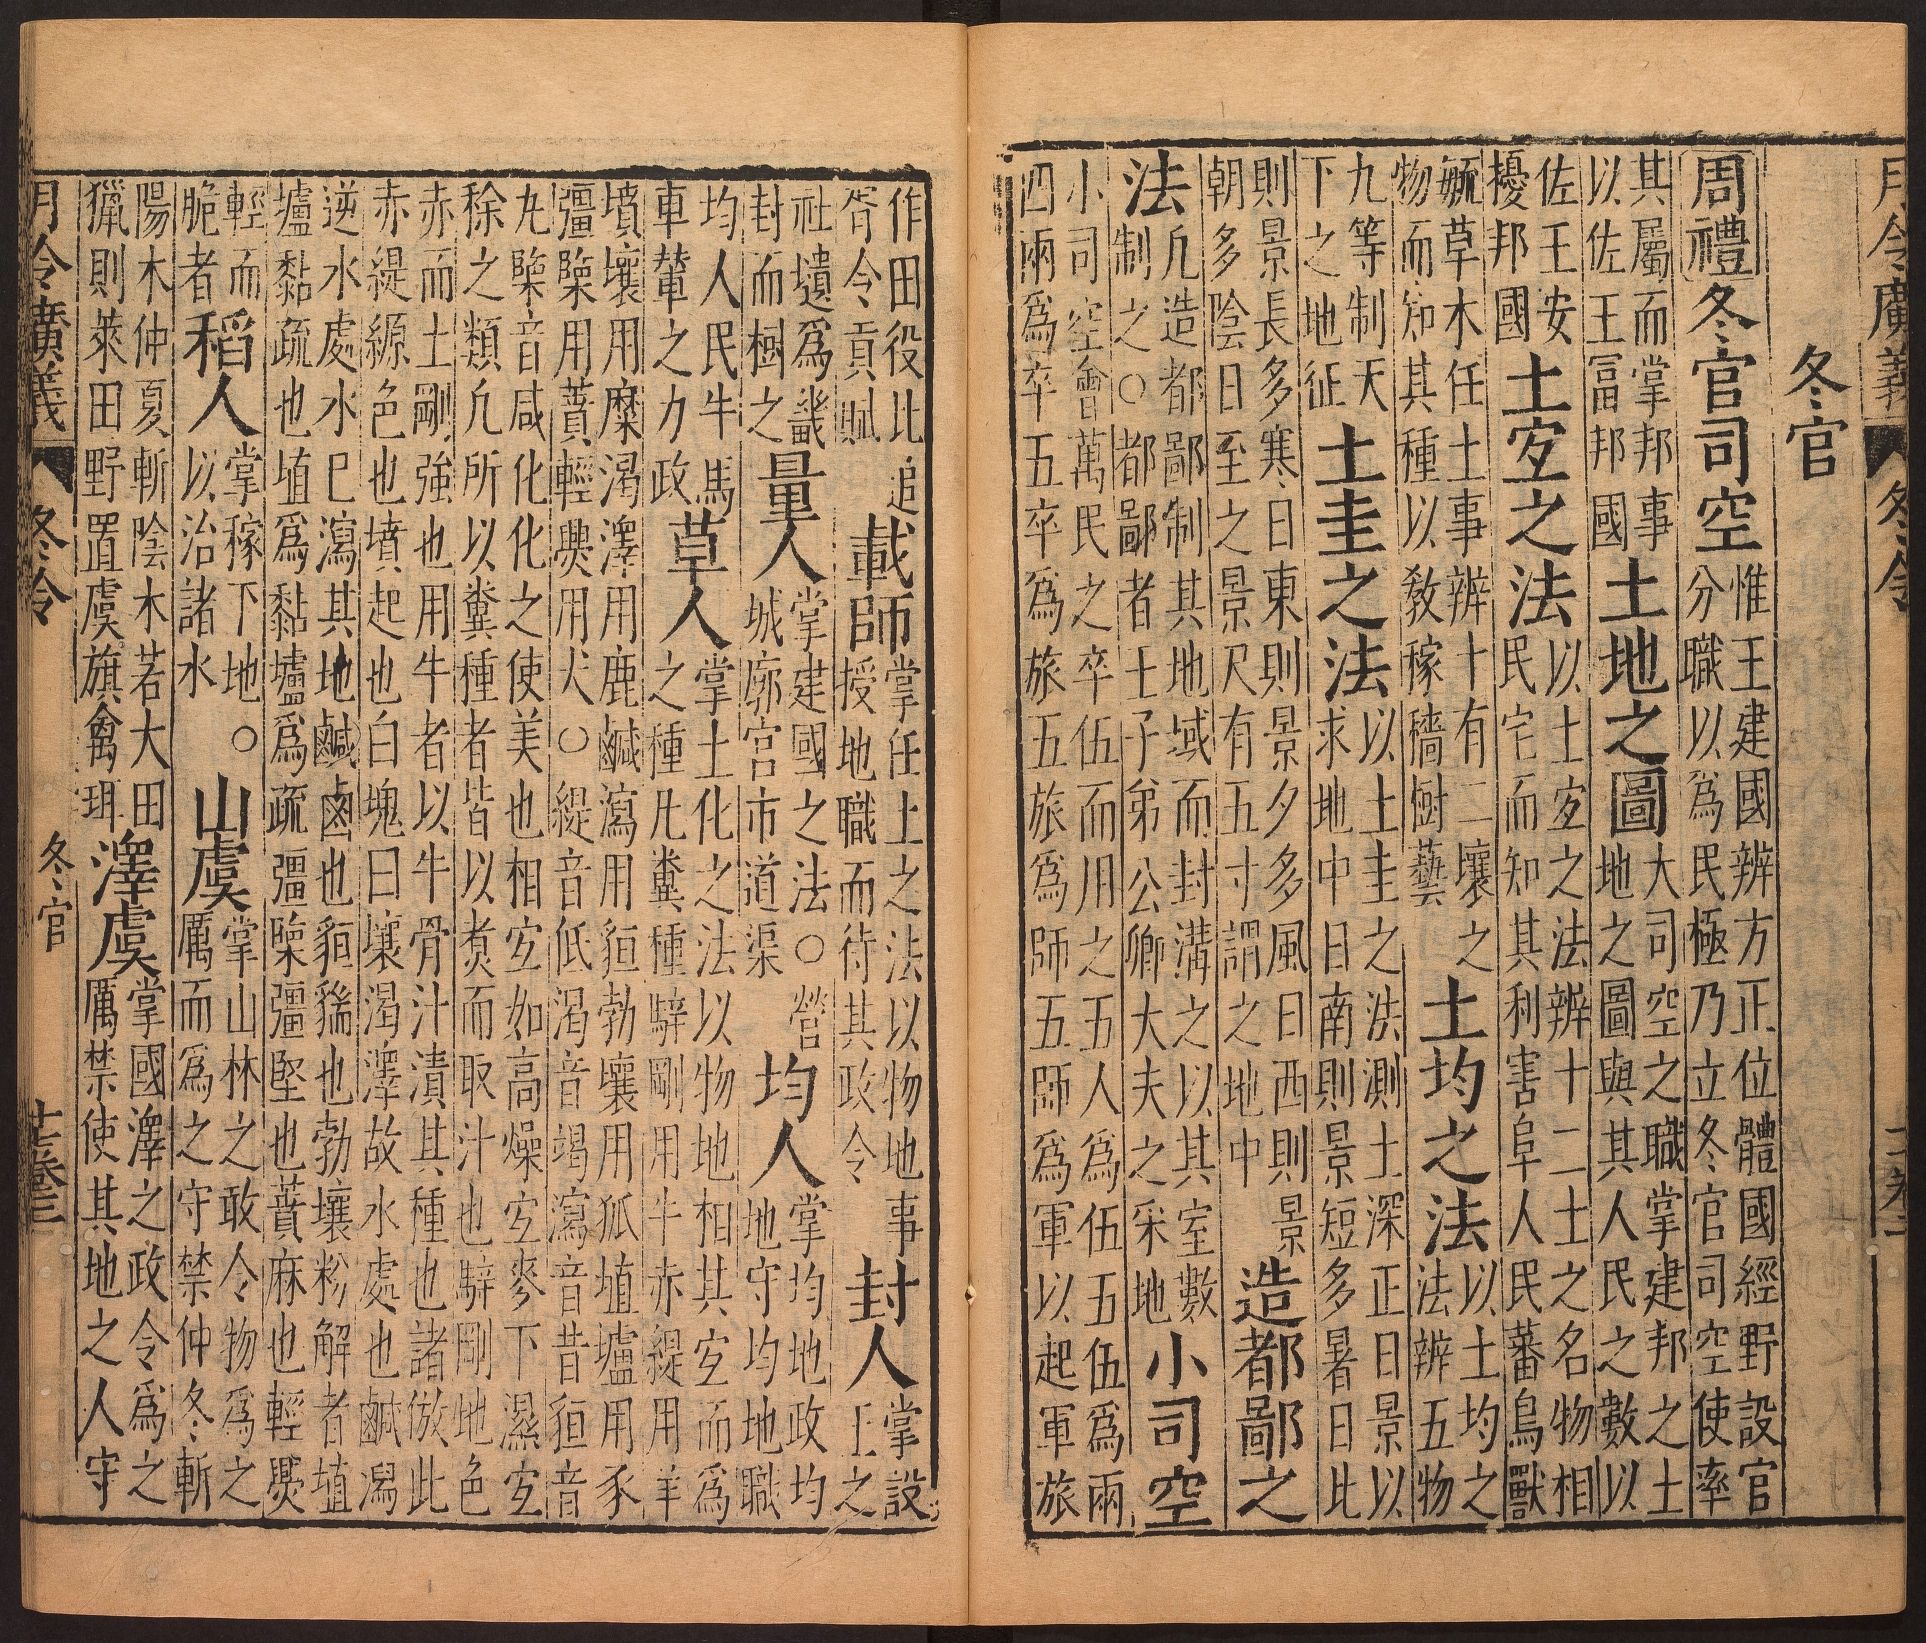 月令廣義 冬令
冬官
周禮 冬官司空
惟王建國辨方正位體國經野設官
分職以爲民極乃立冬官司空使率
其屬而掌邦事
以佐王富邦國
土地之圖
大司空之職掌建邦之土
地之圖與其人民之數以
佐王安
擾邦國
土宜之法
以土宜之法辨十二土之名物相
民宅而知其利害阜人民蕃鳥獸
毓草木任土事辨十有二壤之
物而知其種以敎稼穡樹藝
土均之法
以土均之
法辨五物
九等制天
下之地征
土圭之法
以土圭之法測土深正日景以
求地中日南則景短多暑日北
則景長多寒日東則景夕多風日西則景
朝多陰日至之景尺有五寸謂之地中
造都鄙之
法
凡造都鄙制其地域而封溝之以其室數
制之○都鄙者王子弟公卿大夫之采地
小司空
小司空會萬民之卒伍而用之五人爲伍五伍爲兩
四兩爲卒五卒爲旅五旅爲師五師爲軍以起軍旅
作田役比追
胥令貢賦
載師
掌任土之法以物地事
授地職而待其政令
封人
掌設
王之
社壝爲畿
封而樹之
量人
掌建國之法○營
城廓宮市道渠
均人
掌均地政均
地守均地職
均人民牛馬
車輦之力政
草人
掌土化之法以物地相其宜而爲
之種凡糞種騂剛用牛赤緹用羊
墳壤用麋渴澤用鹿鹹瀉用貆勃壤用狐埴壚用豕
彊㯺用蕡輕㷰用犬○緹音低渴音竭瀉音昔貆音
九㯺音咸化化之使美也相宜如高燥宜麥下濕宜
稌之類凡所以糞種者皆以煑而取汁也騂剛地色
赤而土剛強也用牛者以牛骨汁漬其種也諸倣此
赤緹縓色也墳起也白塊曰壤渴澤故水處也鹹潟
逆水處水已瀉其地鹹鹵也貆貒也勃壤粉解者埴
壚黏疏也埴爲黏壚爲疏彊㯺彊堅也蕡麻也輕㷰
輕而
脆者
稻人
掌稼下地○
以治諸水
山虞
掌山林之政令物爲之
厲而爲之守禁仲冬斬
陽木仲夏斬陰木若大田
獵則萊田野置虞旗禽珥
澤虞
掌國澤之政令爲之
厲禁使其地之人守
月令廣義 冬令 冬官